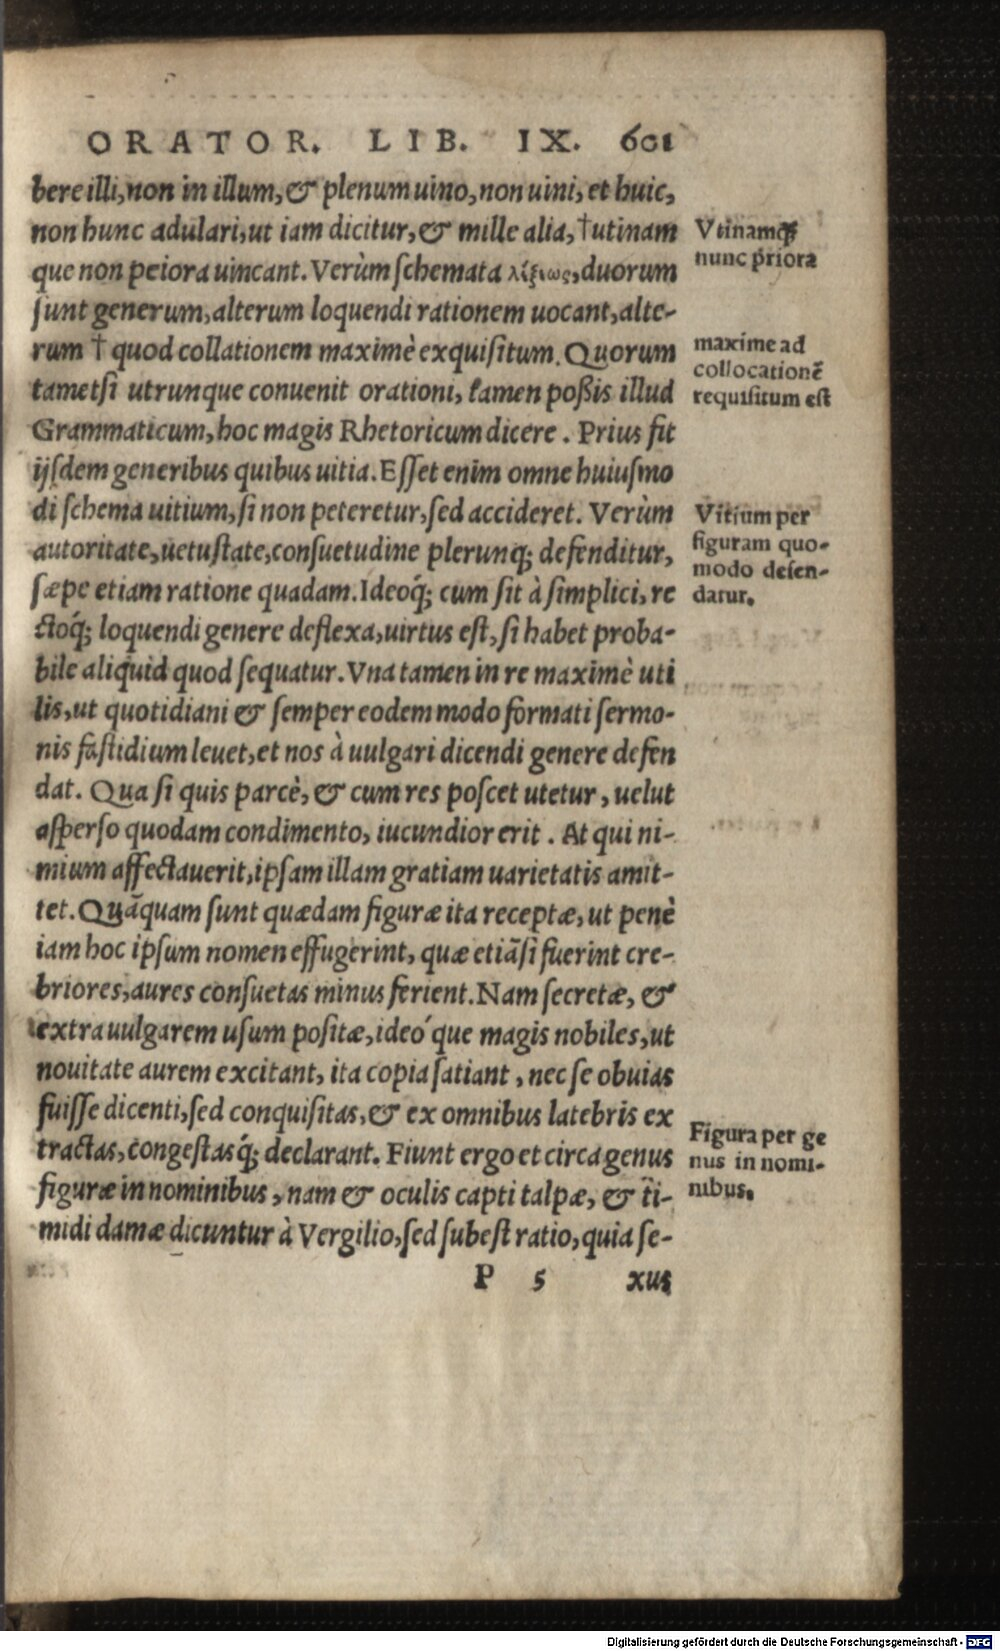 ORATOR. LIB. IX. 601
bere illi, non in illum, & plenum uino, non uini, et huic,
non hunc adulari, ut iam dicitur, & mille alia, †utinam
que non peiora uincant. Verùm schemata λέξεως, duorum
sunt generum, alterum loquendi rationem uocant, alte-
rum † quod collationem maximè exquisitum. Quorum
tametsi utrunque conuenit orationi, tamen poßis illud
Grammaticum, hoc magis Rhetoricum dicere. Prius fit
ijsdem generibus quibus uitia. Esset enim omne huiusmo
di schema uitium, si non peteretur, sed accideret. Verùm
autoritate, uetustate, consuetudine plerunq; defenditur,
sæpe etiam ratione quadam. Ideoq́; cum sit à simplici, re
ctoq́; loquendi genere deflexa, uirtus est, si habet proba-
bile aliquid quod sequatur. Vna tamen in re maximè uti
lis, ut quotidiani & semper eodem modo formati sermo-
nis fastidium leuet, et nos à uulgari dicendi genere defen
dat. Qua si quis parcè, & cum res poscet utetur, uelut
asperso quodam condimento, iucundior erit. At qui ni-
mium affectauerit, ipsam illam gratiam uarietatis amit-
tet. Quãquam sunt quædam figuræ ita receptæ, ut penè
iam hoc ipsum nomen effugerint, quæ etiãsi fuerint cre-
briores, aures consuetas minus ferient. Nam secretæ, &
extra uulgarem usum positæ, ideó que magis nobiles, ut
nouitate aurem excitant, ita copia satiant, nec se obuias
fuisse dicenti, sed conquisitas, & ex omnibus latebris ex
tractas, congestasq́; declarant. Fiunt ergo et circa genus
figuræ in nominibus, nam & oculis capti talpæ, & ti-
midi damæ dicuntur à Vergilio, sed subest ratio, quia se-
P 5 xus
Vtinamq;
nunc priora
maxime ad
collocationē
requisitum est
Vitium per
figuram quo-
modo defen-
datur.
Figura per ge
nus in nomi-
nibus.
Digitalisierung gefördert durch die Deutsche Forschungsgemeinschaft - DFG